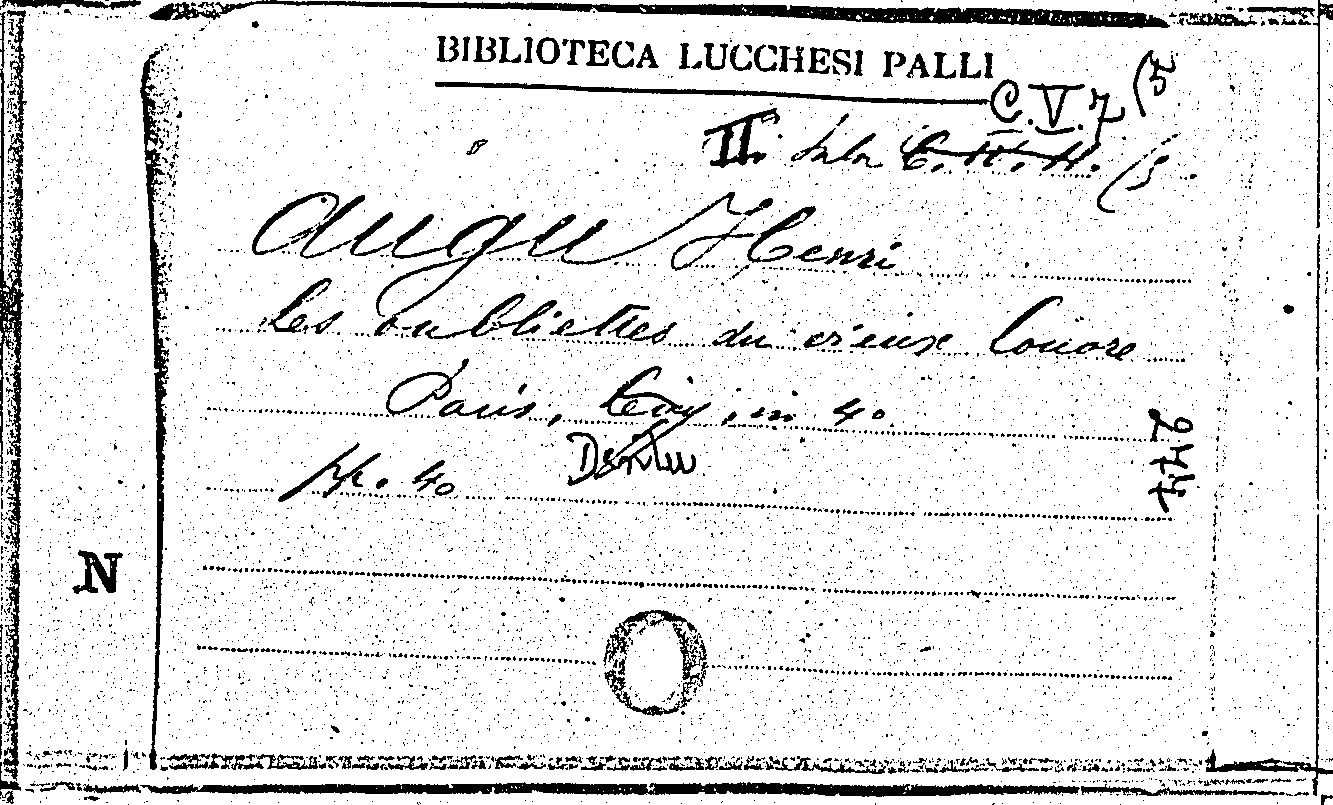 BIBLIOTECA LUCCHESI PALLI
C.V.7 (5
II. Sala C.H.H. (5.
Augu Henri
les oubliettes du vieux louvre
Paris, in 4o
Dentu
pp. 40
N